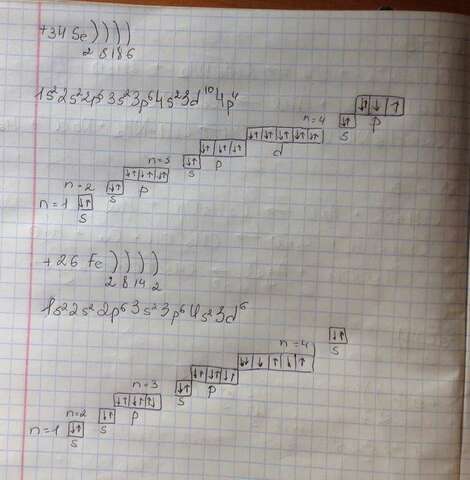 +34 Se ) ) ) )
2 8 18 6
1s²2s²2p⁶3s²3p⁶4s²3d¹⁰4p⁴
n=4 s p
n=3 s p d
n=2 s p
n=1 s
+26 Fe ) ) ) )
2 8 14 2
1s²2s²2p⁶3s²3p⁶4s²3d⁶
n=4 s
n=3 s p
n=2 s p
n=1 s